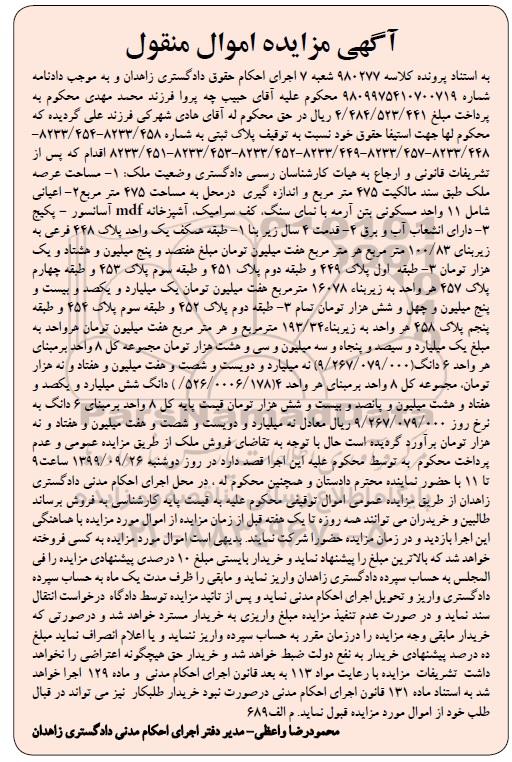 آگهی مزایده اموال منقول
به استناد پرونده کلاسه ۹۸۰۲۷۷ شعبه ۷ اجرای احکام حقوق دادگستری زاهدان و به موجب دادنامه
شماره ۹۸۰۹۹۷۵۴۱۰۷۰۰۷۱۹ محکوم علیه آقای حبیب چه پروا فرزند محمد مهدی محکوم به
پرداخت مبلغ ۴/۴۸۴/۵۲۳/۴۴۱ ریال در حق محکوم له آقای هادی شهرکی فرزند علی گردیده که
محکوم لها جهت استیفا حقوق خود نسبت به توقیف پلاک ثبتی به شماره ۸۲۳۳/۴۵۸-۸۲۳۳/۴۵۴-
۸۲۳۳/۴۴۸-۸۲۳۳/۴۵۷-۸۲۳۳/۴۴۹-۸۲۳۳/۴۵۲-۸۲۳۳/۴۵۳-۸۲۳۳/۴۵۱ اقدام که پس از
تشریفات قانونی و ارجاع به هیات کارشناسان رسمی دادگستری وضعیت ملک: ۱- مساحت عرصه
ملک طبق سند مالکیت ۴۷۵ متر مربع و اندازه گیری درمحل به مساحت ۴۷۵ متر مربع۲- اعیانی
شامل ۱۱ واحد مسکونی بتن آرمه با نمای سنگ، کف سرامیک، آشپزخانه mdf آسانسور - پکیج
۳- دارای انشعاب آب و برق ۴-قدمت ۴ سال زیر بنا ۱- طبقه همکف یک واحد پلاک ۴۴۸ فرعی به
زیربنای ۱۰۰/۸۳ متر مربع هر متر مربع هفت میلیون تومان مبلغ هفتصد و پنج میلیون و هشتاد و یک
هزار تومان ۳- طبقه اول پلاک ۴۴۹ و طبقه دوم پلاک ۴۵۱ و طبقه سوم پلاک ۴۵۳ و طبقه چهارم
پلاک ۴۵۷ هر واحد به زیربناء ۱۶۰۷۸ مترمربع هفت میلیون تومان یک میلیارد و یکصد و بیست و
پنج میلیون و چهل و شش هزار تومان تمام ۳- طبقه دوم پلاک ۴۵۲ و طبقه سوم پلاک ۴۵۴ و طبقه
پنجم پلاک ۴۵۸ هر واحد به زیربناء۱۹۳/۳۴ مترمربع و هر متر مربع هفت میلیون تومان هرواحد به
مبلغ یک میلیارد و سیصد و پنجاه و سه میلیون و سی و هشت هزار تومان مجموعه کل ۸ واحد برمبنای
هر واحد ۶ دانگ(۹/۲۶۷/۰۷۹/۰۰۰) نه میلیارد و دویست و شصت و هفت میلیون و هفتاد و نه هزار
تومان، مجموعه کل ۸ واحد برمبنای هر واحد ۴(۵۲۶/۰۰۰۶/۱۷۸/) دانگ شش میلیارد و یکصد و
هفتاد و هشت میلیون و پانصد و بیست و شش هزار تومان قیمت پایه کل ۸ واحد برمبنای ۶ دانگ به
نرخ روز ۹/۲۶۷/۰۷۹/۰۰۰ ریال معادل نه میلیارد و دویست و شصت و هفت میلیون و هفتاد و نه
هزار تومان برآورد گردیده است حال با توجه به تقاضای فروش ملک از طریق مزایده عمومی و عدم
پرداخت محکوم به توسط محکوم علیه این اجرا قصد دارد در روز دوشنبه ۱۳۹۹/۰۹/۲۶ ساعت۹
تا ۱۱ با حضور نماینده محترم دادستان و همچنین محکوم له ، در محل اجرای احکام مدنی دادگستری
زاهدان از طریق مزایده عمومی اموال توقیفی محکوم علیه به قیمت پایه کارشناسی به فروش برساند
طالبین و خریدران می توانند همه روزه تا یک هفته قبل از زمان مزایده از اموال مورد مزایده با هماهنگی
این اجرا بازدید و در زمان مزایده حضورا شرکت نمایند. بدیهی است اموال مورد مزایده به کسی فروخته
خواهد شد که بالاترین مبلغ را پیشنهاد نماید و خریدار بایستی مبلغ ۱۰ درصدی پیشنهادی مزایده را فی
المجلس به حساب سپرده دادگستری زاهدان واریز نماید و مابقی را ظرف مدت یک ماه به حساب سپرده
دادگستری واریز و تحویل اجرای احکام مدنی نماید و پس از تائید مزایده توسط دادگاه درخواست انتقال
سند نماید و در صورت عدم تنفیذ مزایده مبلغ واریزی به خریدار مسترد خواهد شد و درصورتی که
خریدار مابقی وجه مزایده را درزمان مقرر به حساب سپرده واریز ننماید و یا اعلام انصراف نماید مبلغ
ده درصد پیشنهادی خریدار به نفع دولت ضبط خواهد شد و خریدار حق هیچگونه اعتراضی را نخواهد
داشت تشریفات مزایده با رعایت مواد ۱۱۳ به بعد قانون اجرای احکام مدنی و ماده ۱۲۹ اجرا خواهد
شد به استناد ماده ۱۳۱ قانون اجرای احکام مدنی درصورت نبود خریدار طلبکار نیز می تواند در قبال
طلب خود از اموال مورد مزایده قبول نماید. م الف۶۸۹
محمودرضا واعظی- مدیر دفتر اجرای احکام مدنی دادگستری زاهدان